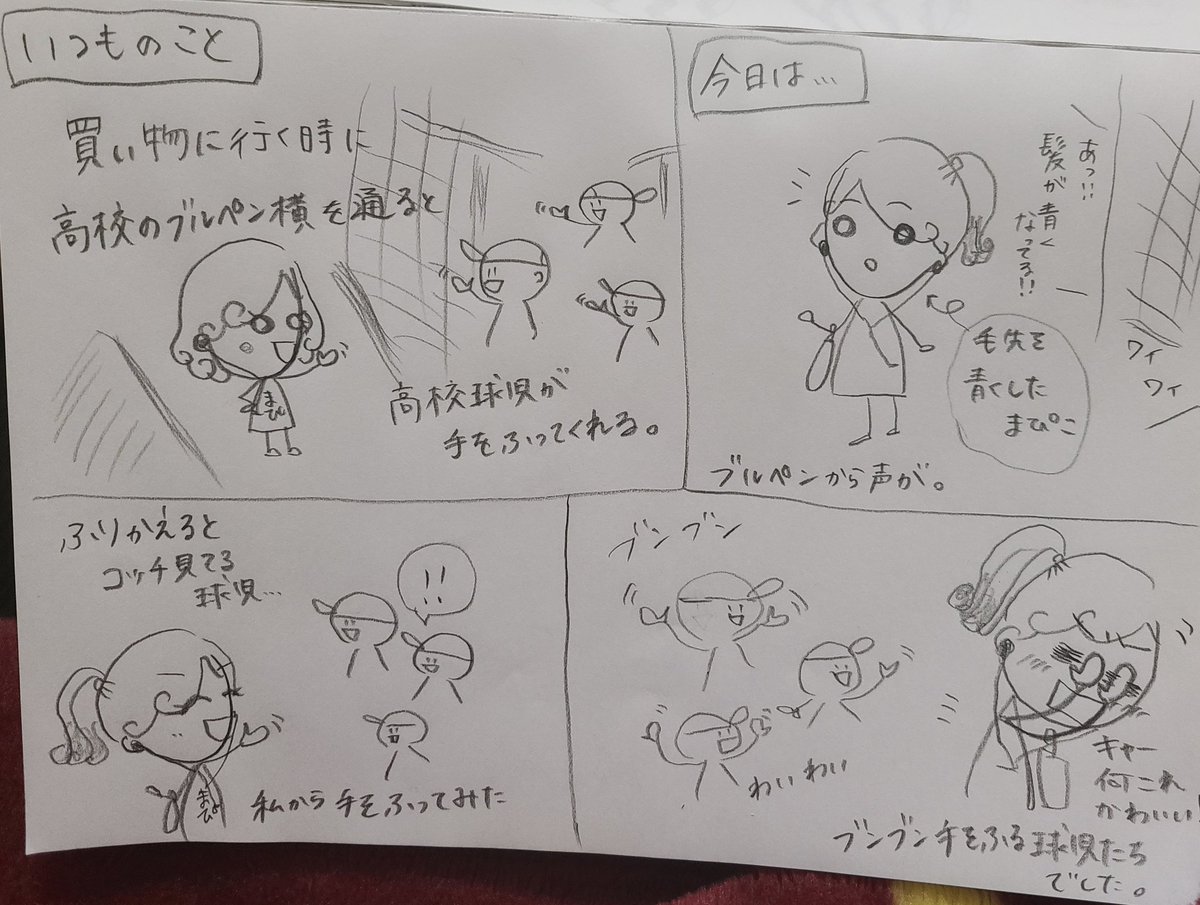 いつものこと
買い物に行く時に
高校のブルペン横を通ると
まぴ
高校球児が
手をふってくれる。
今日は…
あっ!!
髪が青く
なってる!!
毛先を
青くした
まぴこ
ワイ
ワイ
ブルペンから声が。
ふりかえると
コッチ見てる
球児…
!!
まぴ
私から手をふってみた
ブンブン
わいわい
キャー
何これ
かわいい!
ブンブン手をふる球児たち
でした。